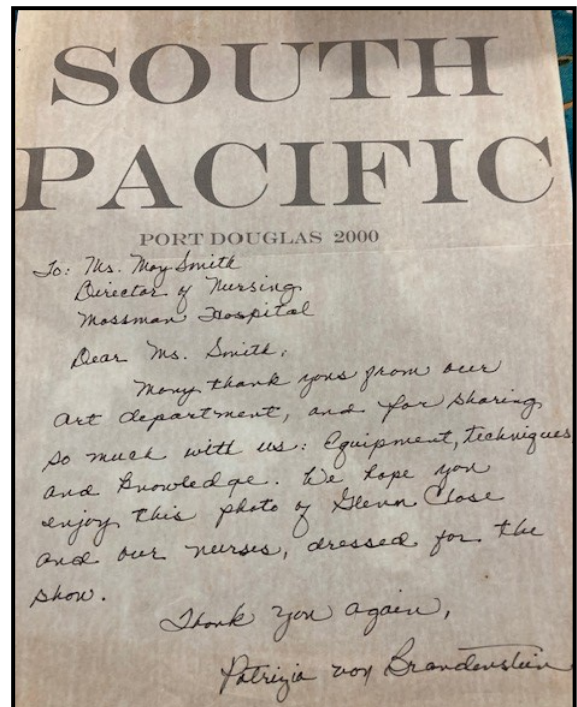 SOUTH
PACIFIC
PORT DOUGLAS 2000
To: Ms. May Smith
Director of Nursing
Mossman Hospital
Dear Ms. Smith,
Many thank yous from our
art department, and for sharing
so much with us: Equipment, techniques
and knowledge. We hope you
enjoy this photo of Glenn Close
and our nurses, dressed for the
show.
Thank you again,
Patrizia von Brandenstein